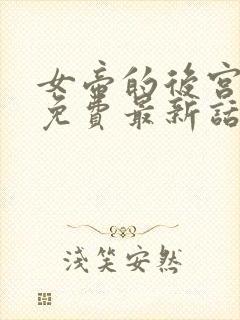 女帝的後宮
免費最新話
淺笑安然